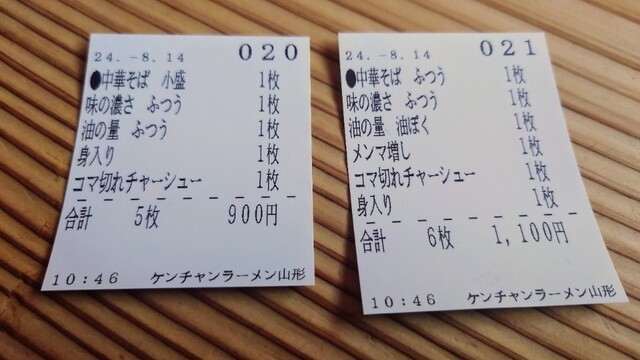 24.-8.14 020
●中華そば 小盛 1枚
味の濃さ ふつう 1枚
油の量 ふつう 1枚
身入り 1枚
コマ切れチャーシュー 1枚
合計 5枚 900円
10:46 ケンチャンラーメン山形
24.-8.14 021
●中華そば ふつう 1枚
味の濃さ ふつう 1枚
油の量 油ぽく 1枚
メンマ増し 1枚
コマ切れチャーシュー 1枚
身入り 1枚
合計 6枚 1,100円
10:46 ケンチャンラーメン山形